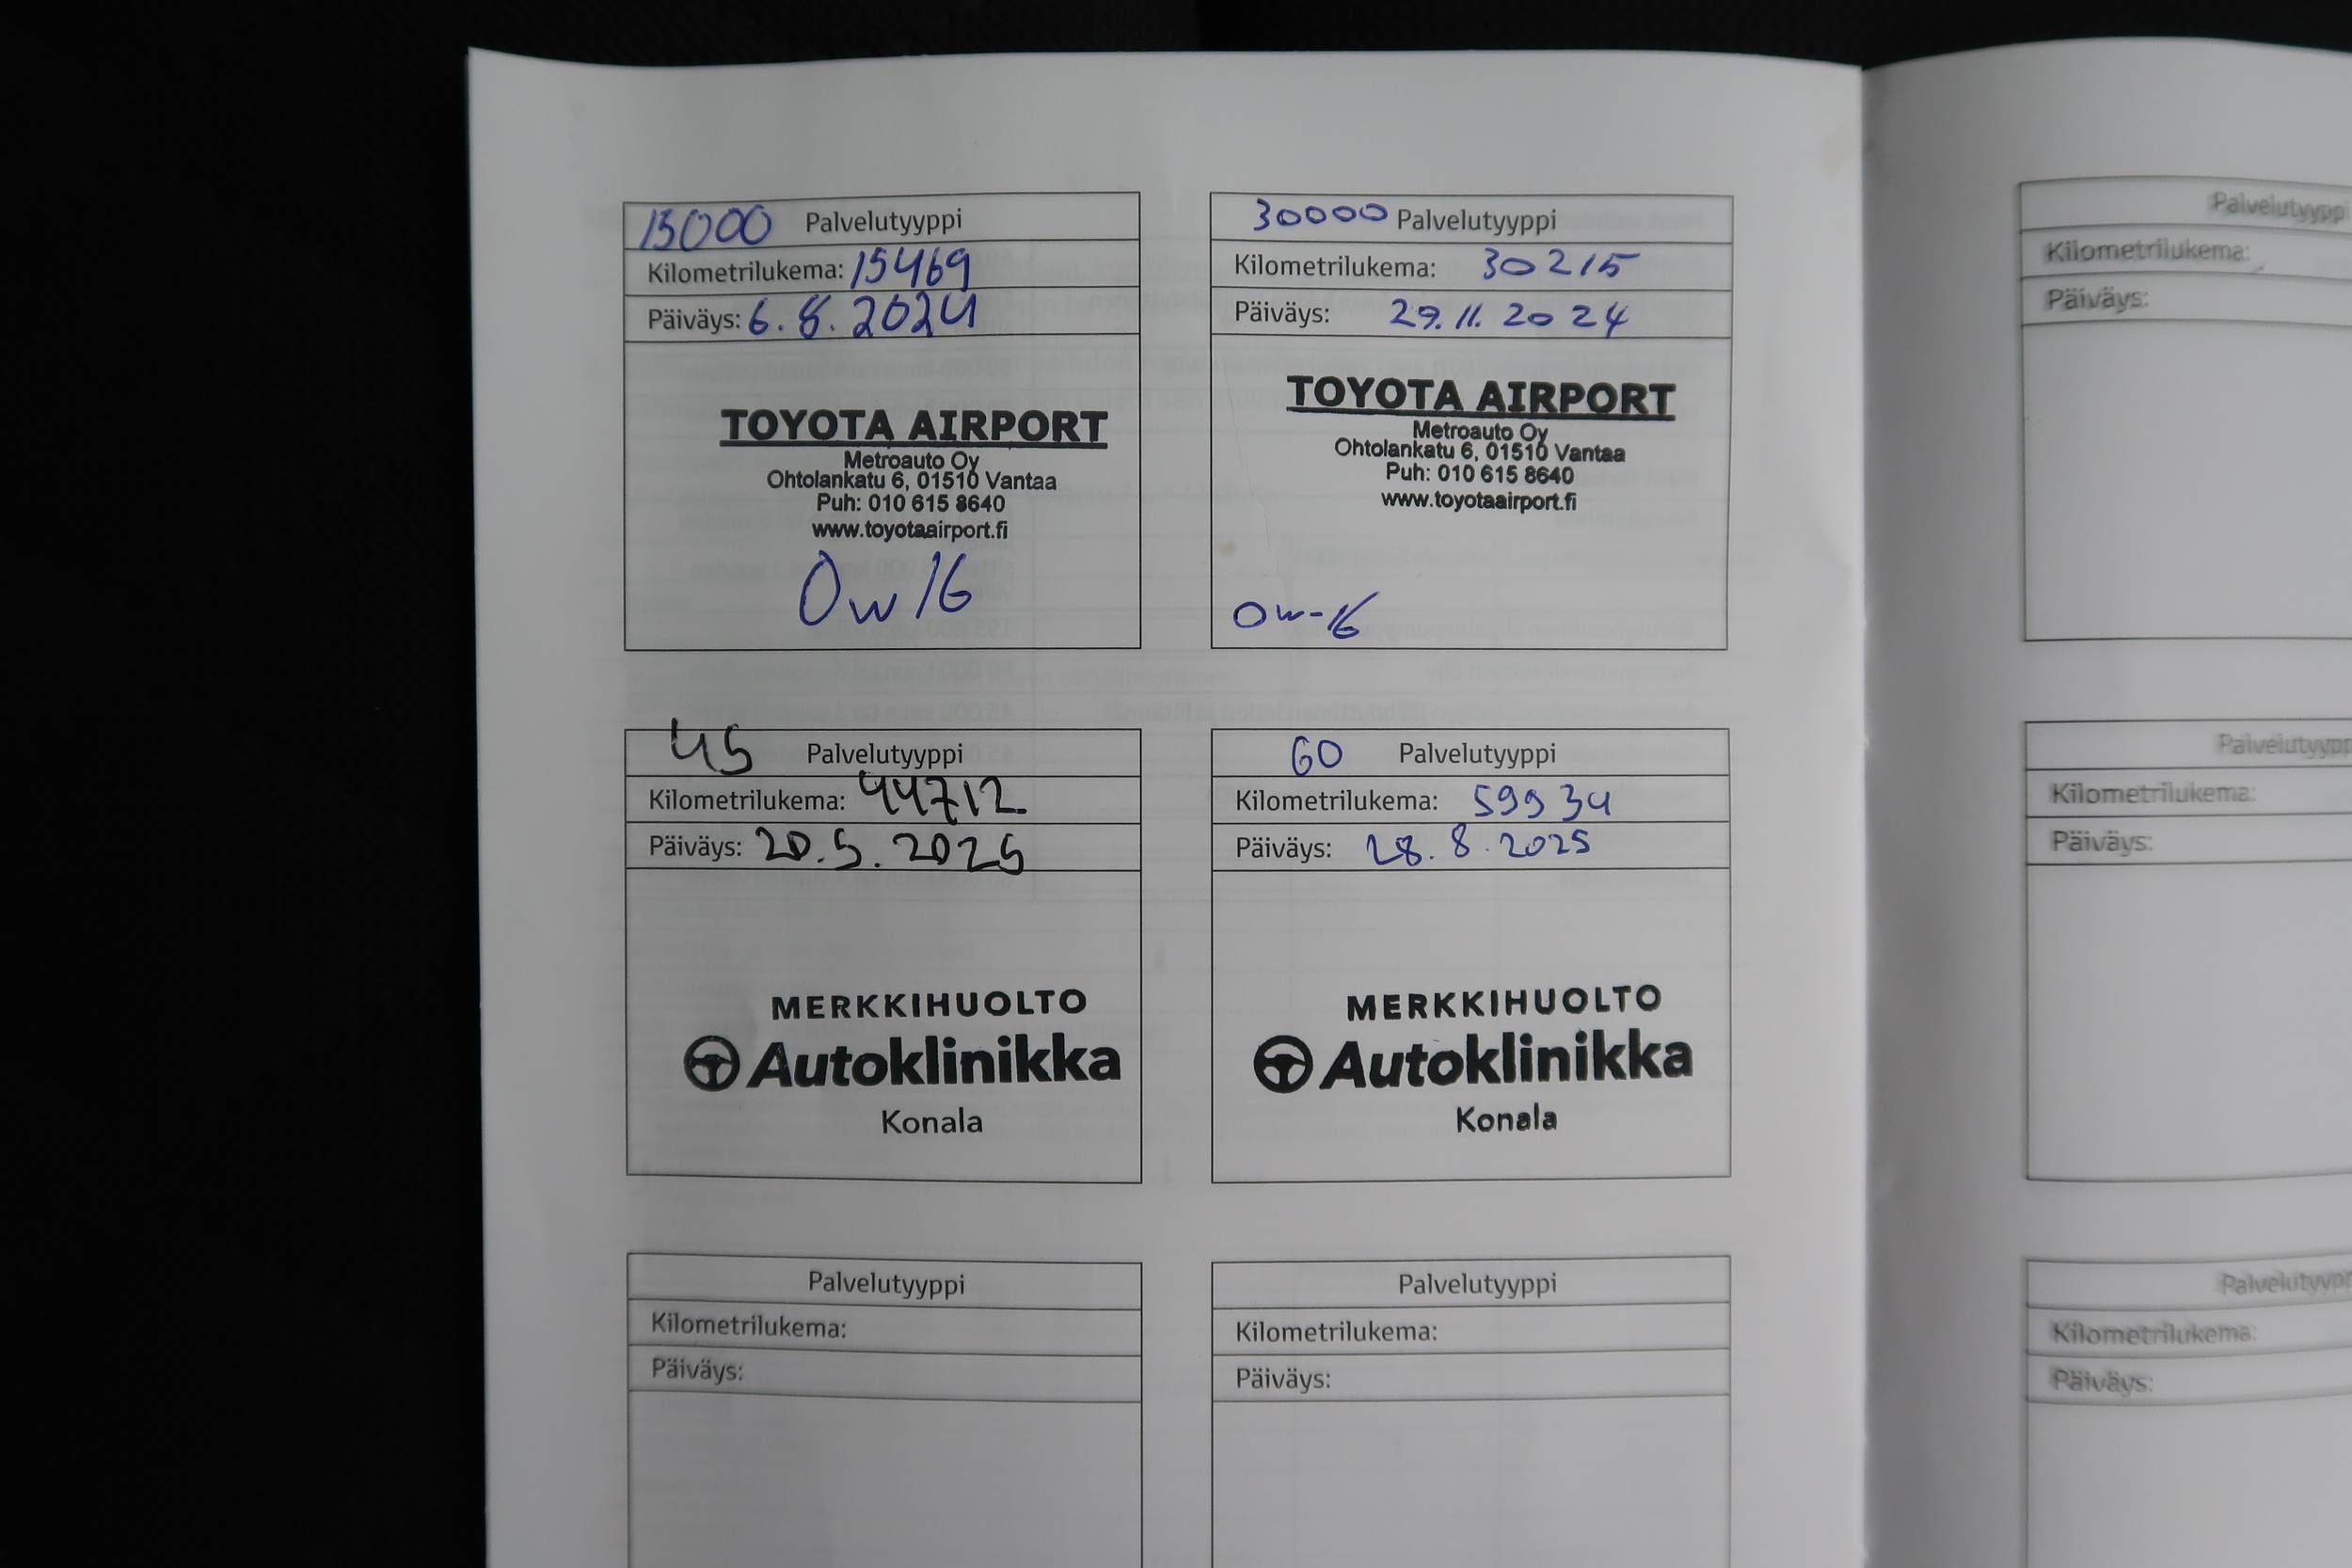 15000 Palvelutyyppi
Kilometrilukema: 15469
Päiväys: 6.8.2024
TOYOTA AIRPORT
Metroauto Oy
Ohtolankatu 6, 01510 Vantaa
Puh: 010 615 8640
www.toyotaairport.fi
0w16
30000 Palvelutyyppi
Kilometrilukema: 30215
Päiväys: 29.11.2024
TOYOTA AIRPORT
Metroauto Oy
Ohtolankatu 6, 01510 Vantaa
Puh: 010 615 8640
www.toyotaairport.fi
0w-16
45 Palvelutyyppi
Kilometrilukema: 44712
Päiväys: 20.5.2025
MERKKIHUOLTO
Autoklinikka
Konala
60 Palvelutyyppi
Kilometrilukema: 59934
Päiväys: 28.8.2025
MERKKIHUOLTO
Autoklinikka
Konala
Palvelutyyppi
Kilometrilukema:
Päiväys:
Palvelutyyppi
Kilometrilukema:
Päiväys:
Palvelutyyppi
Kilometrilukema:
Päiväys:
Palvelutyypp
Kilometrilukema:
Päiväys:
Palvelutyypp
Kilometrilukema:
Päiväys: